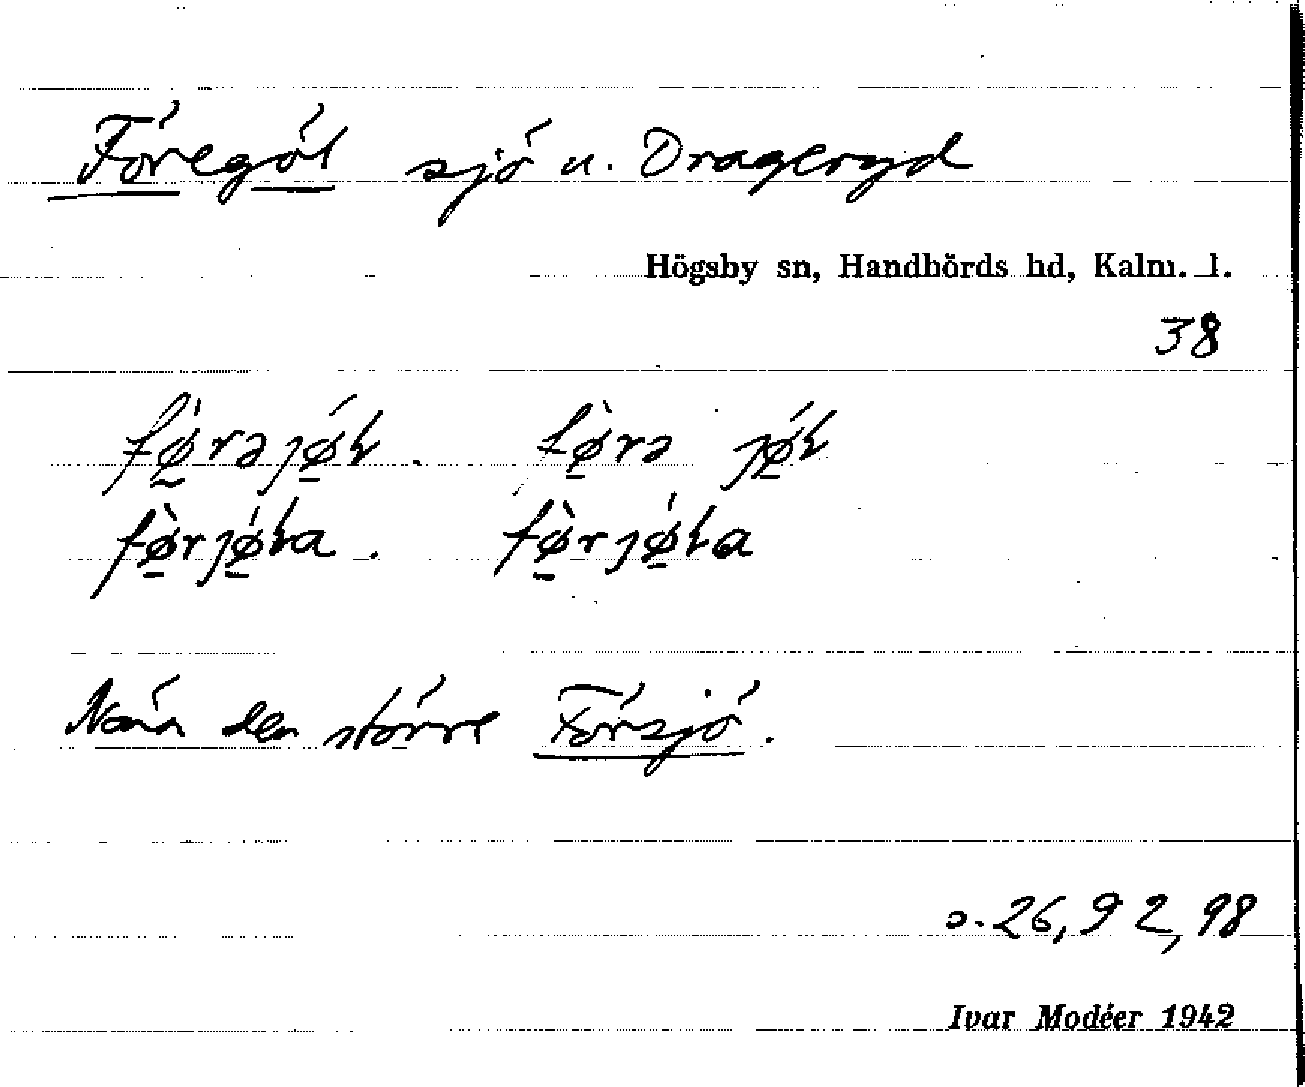 Föregöl sjö u. Drageryd
Högsby sn, Handbörds hd, Kalm. l.
38
fø̀rəjǿɫ. fø̀rə jǿɫ
fø̀rjǿɫa. fø̀rjǿɫa
den större Försjö.
o. 26, 92, 98
Ivar Modéer 1942